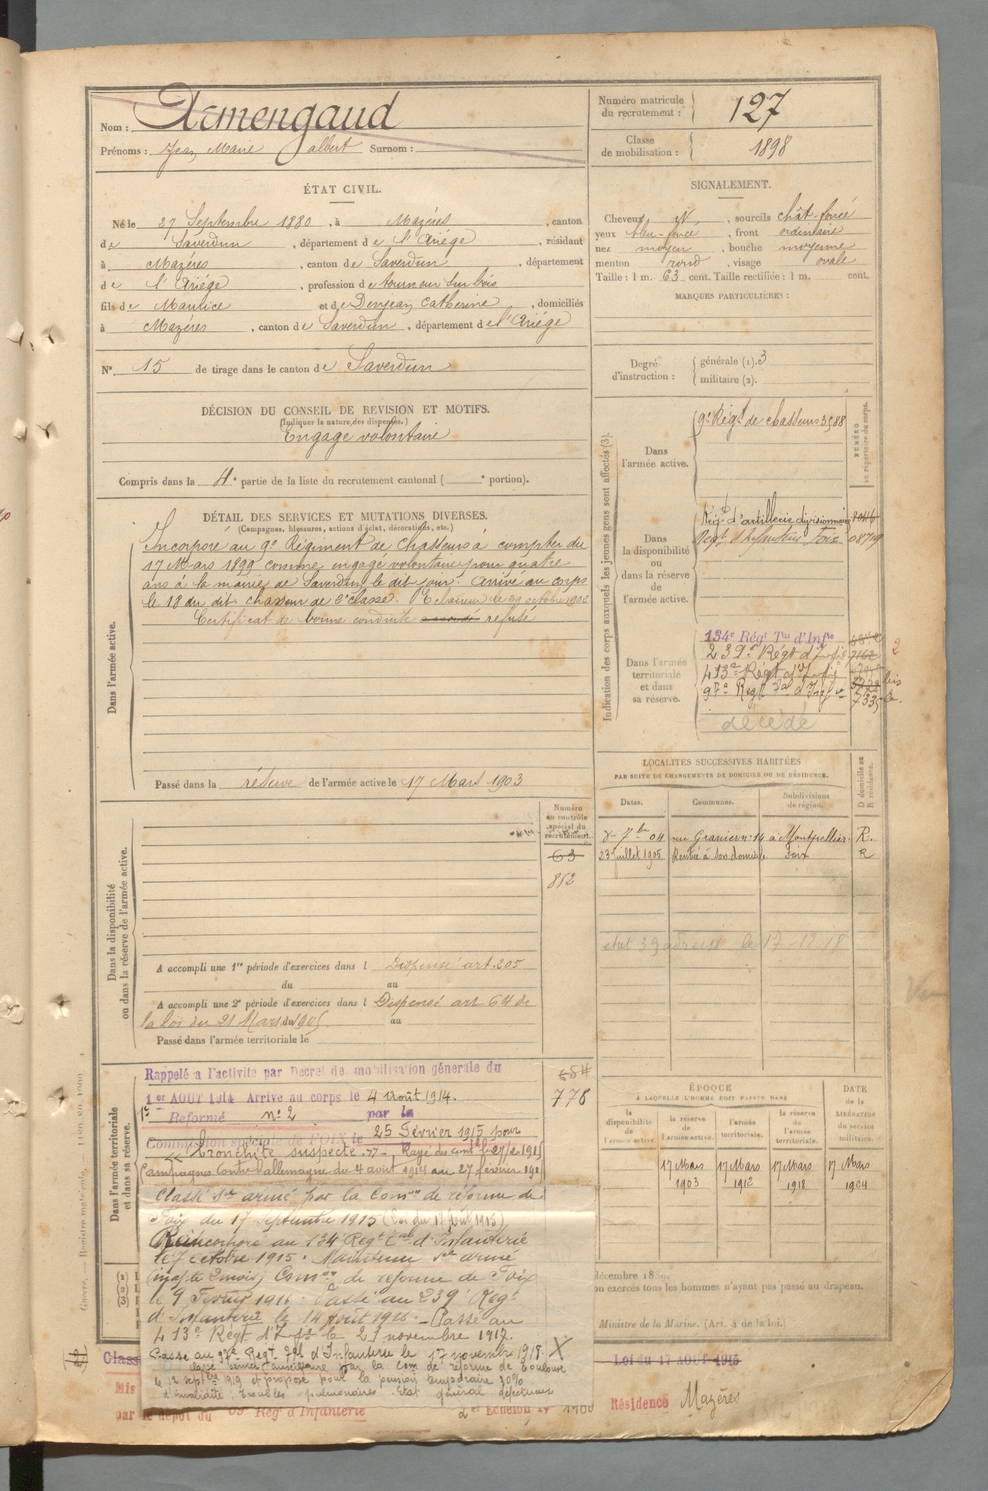 Nom : Armengaud
Prénoms : Jean Marie Albert Surnom :
Numéro matricule du recrutement : 127
Classe de mobilisation : 1898
ÉTAT CIVIL.
Né le 27 Septembre 1880, à Mazères, canton
de Saverdun, département de l'Ariége, résidant
à Mazéres, canton de Saverdun, département
de l'Ariége, profession de tourneur sur bois
fils de Maurice et de Denjean Catherine, domiciliés
à Mazéres, canton de Saverdun, département de l'Ariége
N° 15 de tirage dans le canton de Saverdun
SIGNALEMENT.
Cheveux N, sourcils chât-foncé
yeux bleu-foncé, front ordinaire
nez moyen, bouche moyenne
menton rond, visage ovale
Taille : 1 m. 63 cent. Taille rectifiée : 1 m. cent.
MARQUES PARTICULIÈRES :
Degré d'instruction : générale (1). 3
militaire (2).
DÉCISION DU CONSEIL DE REVISION ET MOTIFS.
(Indiquer la nature des dispenses.)
Engagé volontaire
Compris dans la 4e partie de la liste du recrutement cantonal ( e portion).
DÉTAIL DES SERVICES ET MUTATIONS DIVERSES.
(Campagnes, blessures, actions d'éclat, décorations, etc.)
Dans l'armée active.
Incorporé au 9e Régiment de Chasseurs à compter du
17 Mars 1899 comme engagé volontaire pour quatre
ans à la mairie de Saverdun le dit jour. Arrivé au corps
le 18 du dit chasseur de 2e classe. Eclaireur le 29 octobre 1902
Certificat de bonne conduite refusé
Passé dans la réserve de l'armée active le 17 Mars 1903
Indication des corps auxquels les jeunes gens sont affectés (3).
Dans l'armée active.
9e Régt de chasseurs 3588
NUMÉRO au répertoire du corps.
Dans la disponibilité ou dans la réserve de l'armée active.
Régt d'artillerie divisionnaire
Régt d'Infanterie Foix
Dans l'armée territoriale et dans sa réserve.
134e Régt Tal d'Infie
239e Régt d'Infie
413e Régt d'Infie
97e Régt Tal d'Infie
décédé
2
LOCALITÉS SUCCESSIVES HABITÉES
PAR SUITE DE CHANGEMENTS DE DOMICILE OU DE RÉSIDENCE.
Dates. Communes. Subdivisions de région. D domicile ou R résidence.
7bre 04 rue Granier n° 14 à Montpellier. R.
23 juillet 1905 Rentré à son domicile Foix R
le 17-11-18
Dans la disponibilité ou dans la réserve de l'armée active.
Numéro au contrôle spécial du recrutement.
63
852
A accompli une 1re période d'exercices dans l Dispensé art. 205
du au
A accompli une 2e période d'exercices dans l Dispensé art 64 de
la loi du 21 Mars 1905 au
Passé dans l'armée territoriale le
Dans l'armée territoriale et dans sa réserve.
Rappelé à l'activité par Décret de mobilisation générale du
1er AOUT 1914 Arrivé au corps le 4 août 1914.
654
778
Réformé n° 2 par la
Commission spéciale de FOIX le 25 Février 1915 pour
bronchite suspecte. Rayé des contles le 27/2 1915
Campagnes Contre l'allemagne du 4 août 1914 au 27 février 1915
Classé sce armé par la Comon de réforme de
Foix du 17 Septembre 1915 (Loi du 17 Août 1915)
Réincorporé au 134 Régt Tal d'Infanterie
le 7 octobre 1915. Maintenu sce armé
(inapte 2 mois) Comon de réforme de Foix
le 9 Février 1916. Passé au 239e Régt
d'Infanterie le 14 août 1916. Passé au
413e Régt d'Infie le 21 novembre 1917.
Passé au 97e Régt Tal d'Infanterie le 17 novembre 1918. X
Classé service auxiliaire par la Com de réforme de Toulouse
le 12 septbre 1919 et proposé pour la pension temporaire 30%
d'invalidité, troubles pulmonaires. Etat général défectueux
ÉPOQUE
À LAQUELLE L'HOMME DOIT PASSER DANS
la disponibilité de l'armée active.
la réserve de l'armée active.
l'armée territoriale.
la réserve de l'armée territoriale.
DATE de la LIBÉRATION du service militaire.
17 Mars 1903
17 Mars 1912
17 Mars 1918
17 Mars 1924
décembre 18
on exercés tous les hommes n'ayant pas passé au drapeau.
Ministre de la Marine. (Art. de la loi.)
Class
Loi du 17 AOUT 1915
Mis
par le dépôt du Rég d'Infanterie
Résidence Mazères